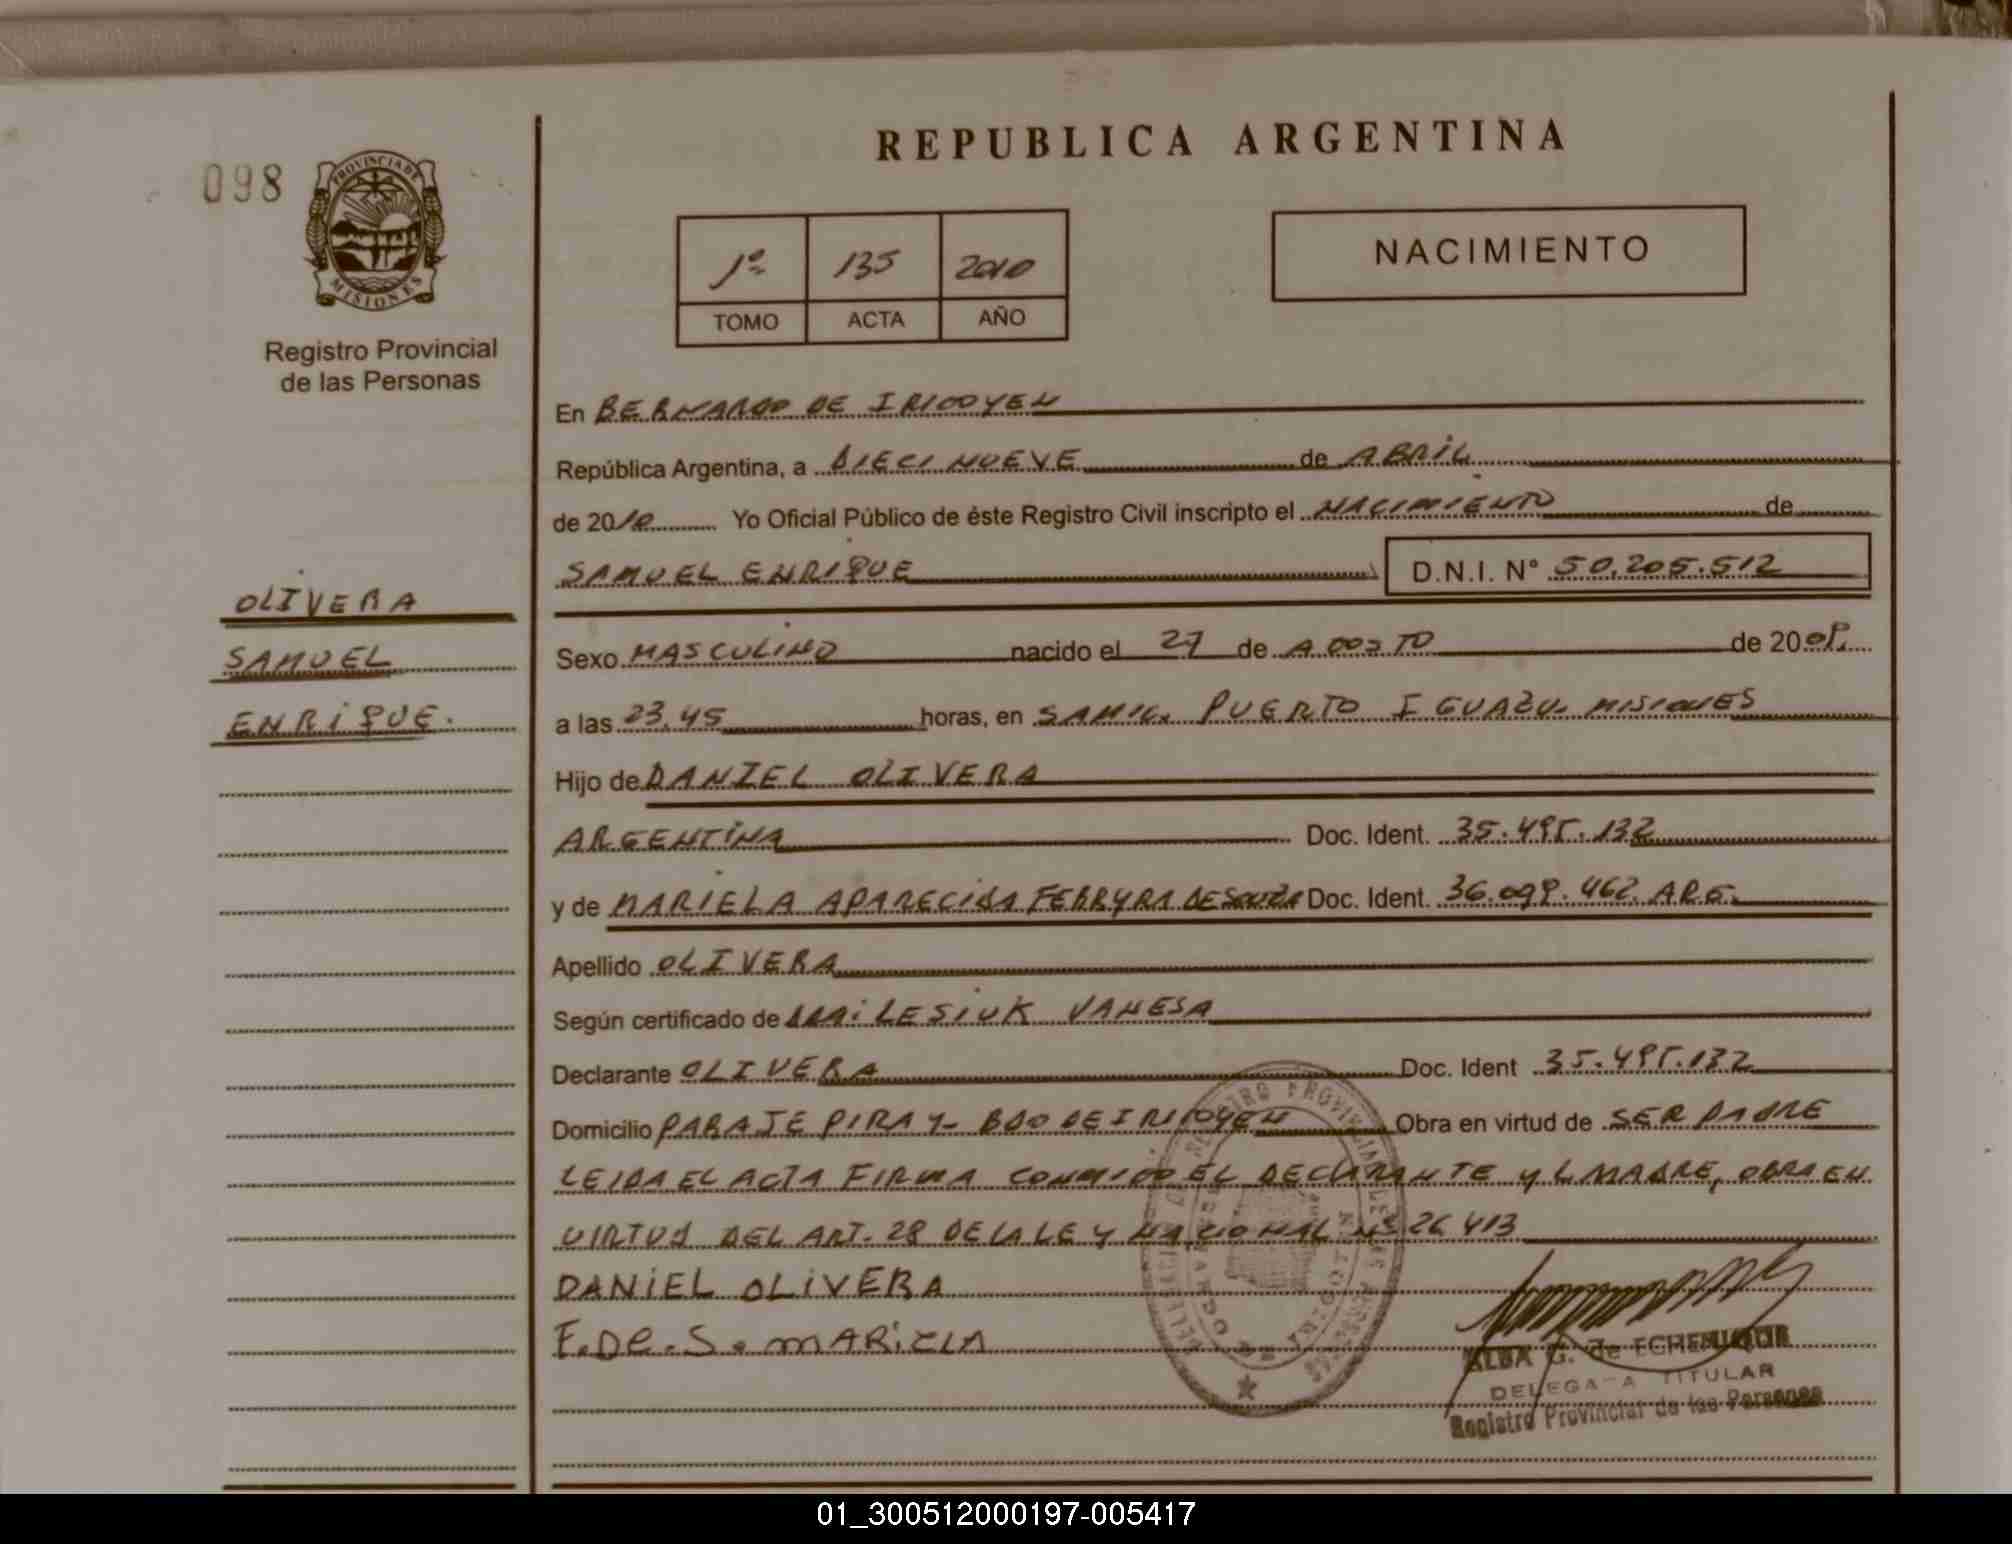 REPUBLICA ARGENTINA
098
PROVINCIA DE
MISIONES
Registro Provincial
de las Personas
1º 135 2010
TOMO ACTA AÑO
NACIMIENTO
En BERNARDO DE IRIGOYEN
República Argentina, a DIECINUEVE de ABRIL
de 2010 Yo Oficial Público de éste Registro Civil inscripto el NACIMIENTO de
SAMUEL ENRIQUE D.N.I. N° 50.205.512
OLIVERA
SAMUEL
ENRIQUE.
Sexo MASCULINO nacido el 27 de AGOSTO de 2009.
a las 23,45 horas, en SAMIC. PUERTO IGUAZU. MISIONES
Hijo de DANIEL OLIVERA
ARGENTINA Doc. Ident. 35.495.132
y de MARIELA APARECIDA FERRYRA DE SOUZA Doc. Ident. 36.099.462. ARG.
Apellido OLIVERA
Según certificado de VANESA
Declarante OLIVERA Doc. Ident 35.495.132
Domicilio PARAJE PIRAY- BDO DE IRIGOYEN Obra en virtud de SER PADRE
LEIDA EL ACTA FIRMA CONMIGO EL DECLARANTE Y L MADRE, OBRA EN
VIRTUD DEL ART. 28 DE LA LEY NACIONAL Nº 26413
DANIEL OLIVERA
F. De. S. MARIELA
ALBA G. de
DELEGADA TITULAR
Registro Provincial de las Personas
01_300512000197-005417